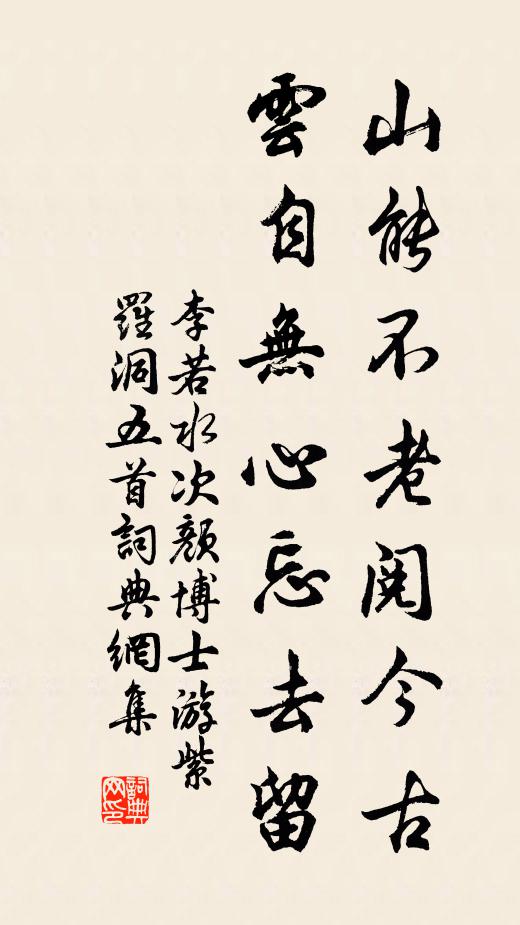 山能不老閱今古
雲自無心忘去留
李若水次顏博士游紫
羅洞五首詞典網集
詞典
网印